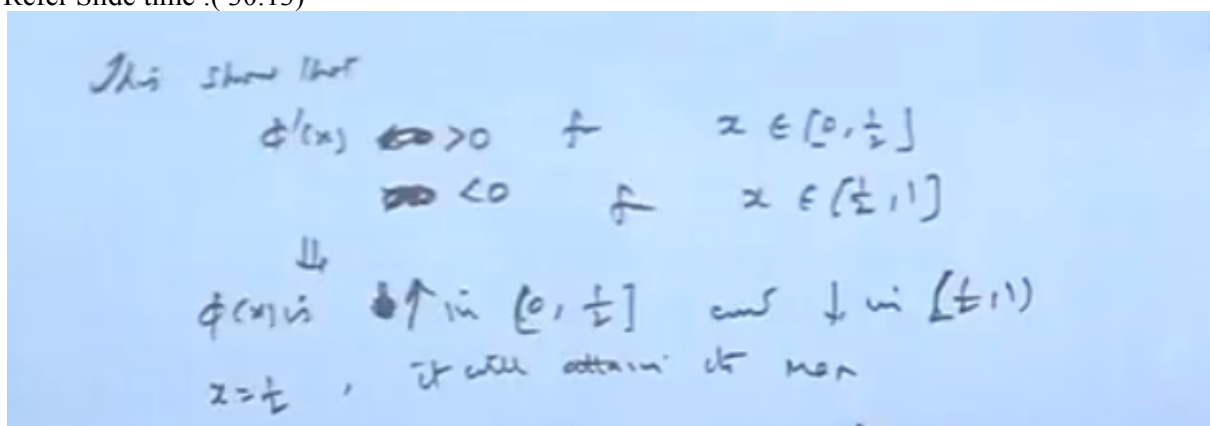 Refer Slide time :( 30:13)
This show that
ϕ'(x) >0 for x ∈ [0, 1/2]
<0 for x ∈ [1/2, 1]
⇓
ϕ(x) is ↑ in [0, 1/2] and ↓ in [1/2, 1)
x = 1/2 , it will attain its max